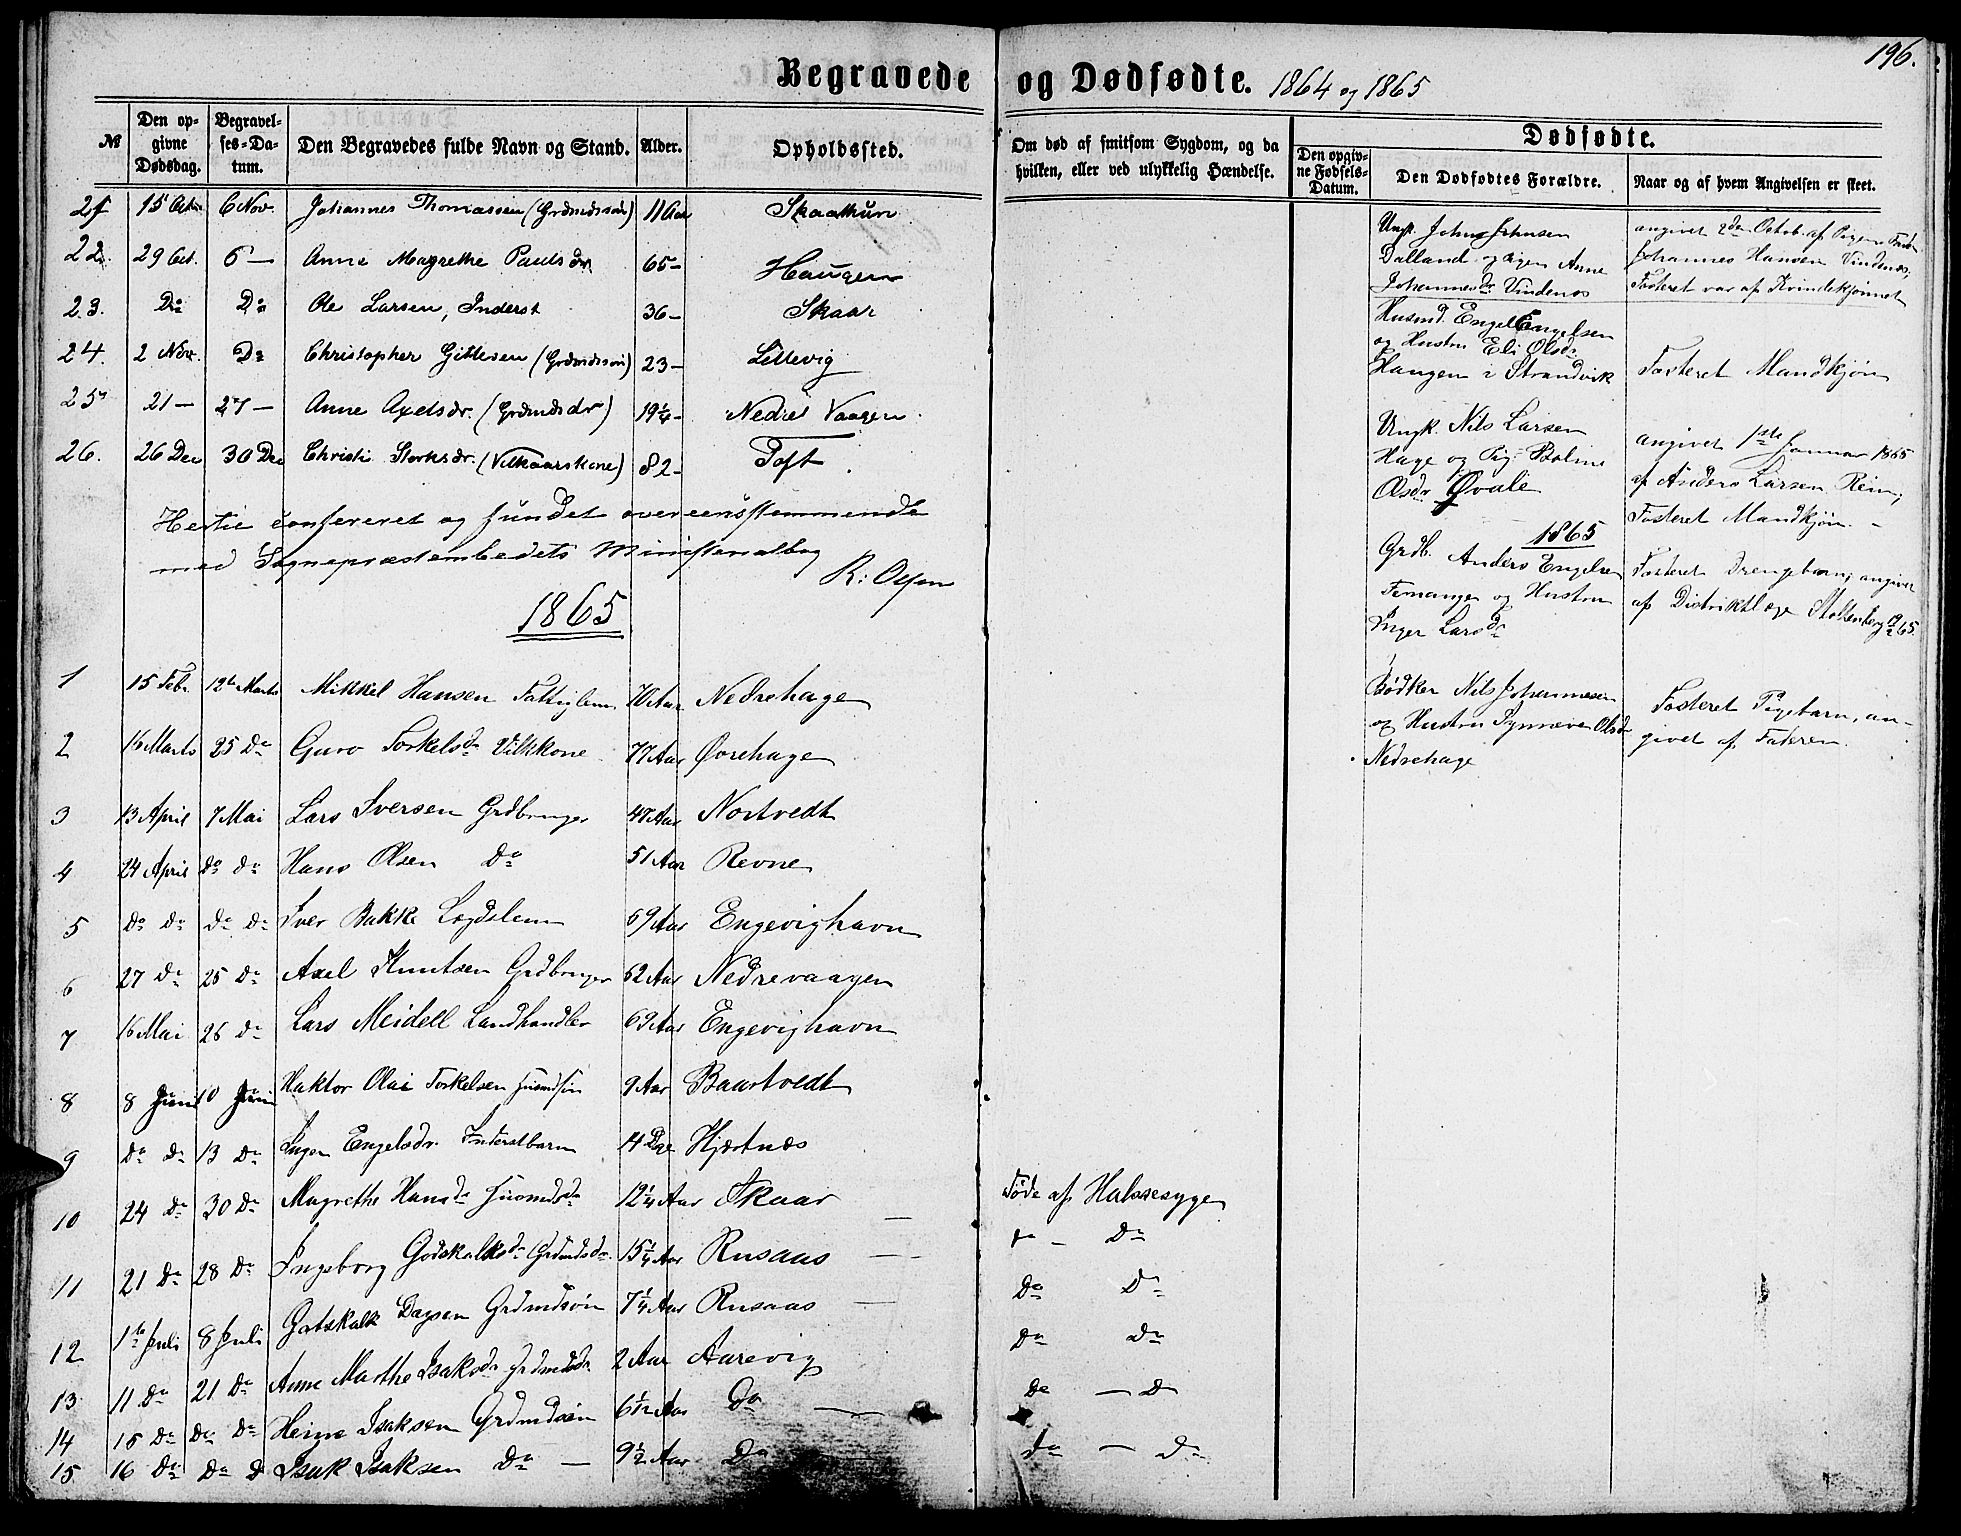 196.
Begravede og Dødfødte. 1864 og 1865
№ | Den opgivne Dødsdag. | Begravelses-Datum. | Den Begravedes fulde Navn og Stand. | Alder. | Opholdssted.
21 15 Octr 6 Nov. Johannes Thomassen (Grdmdssøn) 11 Aar Skaathun
22. 29 Oct. 6 — Anne Magrethe Paulsdr. 65 — Haugen
23. Do Do Ole Larsen, Inderst 36 — Skaar
24. 2 Nov. Do Christopher Gittlesen (Grdmdssøn) 23 — Littevig
25 21 — 27 — Anne Axelsdr. (Grdmdsdr) 19¼ - Nedre Vaagen
26. 26 Dec 30 Dec Christi Størksdr. (Vilkaarskone) 82 - Toft
Hertil confereret og fundet overeensstemmende
med Sognepræstembedets Ministerialbog
R: Olsen
1865
1 15 Febr. 12te Marts Mikkel Hansen Fattiglem 70 Aar Nedrehage
2 16 Marts 25 Do Guro Torkelsdr Vilkkone 77 Aar Øvrehage
3 13 April 7 Mai Lars Iversen Grdbruger 47 Aar Nortvedt
4 24 April do do Hans Olsen Do 51 Aar Revne
5 Do Do Do Do Iver Bakke Lægdslem 69 Aar Engevighavn
6 27 Do 25 Do Axel Knutsen Grdbruger 62 Aar Nedrevaagen
7 16 Mai 26 Do Lars Meidell Landhandler 69 Aar Engevighavn
8 8 Juni 10 Juni Haktor Olai Torkelsen Husmdssøn 9 Aar Baartvedt
9 Do Do 13 Do Inger Engelsdr. Inderstbarn 14 Dge Hjartnæs
10 24 Do 30 Do Magrethe Hansdr Husmdsdr 12¼ Aar Skaar — Døde af Halssesyge
11 21 Do 28 Do Ingeborg Godskalksdr Grdmdsdr. 15¼ Aar Rusaas — do — Do
12 1te Juli 8 Juli Gotskalk Dagsen Grdmdsøn 7¼ Aar Rusaas — Do Do
13 11 Do 21 Do Anne Marthe Isaksdr Grdmdsdr 2 Aar Aarevig Do Do
14 15 Do Do Do Heine Isaksen Grdmdsøn 6½ Aar Do — Do — D
15 16 Do Do D Isak Isaksen Do — 9½ Aar Do Do — Do
Om død af smitsom Sygdom, og da hvilken, eller ved ulykkelig Hændelse.
Dødfødte.
Den opgivne Fødsels-Datum. | Den Dødfødtes Forældre. | Naar og af hvem Angivelsen er skeet.
Ungk. Johns Johnsen
Dalland og Pigen Anne
Johannesdr Vindenes
angivet 2den Octob. af Pigens Fader
Johannes Hansen Vindenes,
Fosteret var af Kvindekjønnet
Husmd. Engel Engelsen
og Hustru Eli Olsdr
Haugen i Strandvik
Fosteret Mandkjøn
Ungk. Nils Larsen
Hage og Pig: Boline
Olsdr Øvale
angivet 1ste Januar 1865
af Anders Larsen Rein,
Fosteret Mandkjøn. -
1865
Grdb. Anders Engelsen
og Hustru
Inger Larsdr
Fosteret Drengebarn, angivet
af Distriktlæge Stoltenberg 65.
Bødker Nils Johannesen
og Hustru Synneve Olsdr
Nedrehage
Fosteret Pigebarn, an-
givet af Faderen.